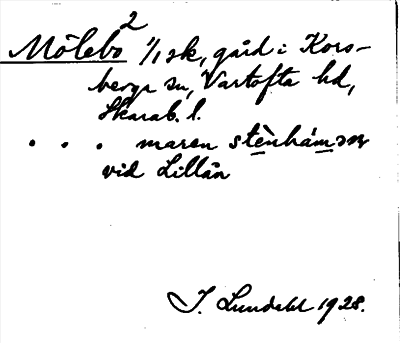 Mölebo² 1/1 sk, gård i Kors-
berga sn, Vartofta hd,
Skarab. l.
. . . maren stènhámɔɳ
vid Lillån
J. Lundahl 1928.